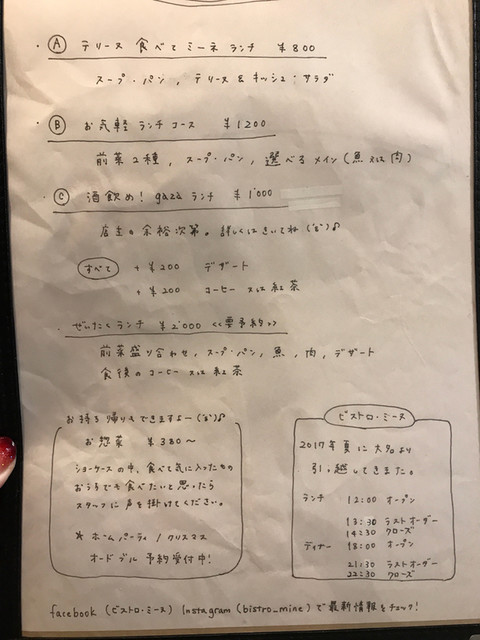 ・Ⓐ テリーヌ 食べてミーネ ランチ ¥800
スープ・パン, テリーヌ & キッシュ・サラダ
・Ⓑ お気軽 ランチコース ¥1200
前菜2種, スープ・パン, 選べるメイン(魚又は肉)
・Ⓒ 酒飲め! gaza ランチ ¥1000
店主の余裕次第。詳しくはきいてね
すべて +¥200 デザート
+¥200 コーヒー又は紅茶
・ぜいたくランチ ¥2000 <<要予約>>
前菜盛り合わせ, スープ・パン, 魚, 肉, デザート
食後のコーヒー又は紅茶
お持ち帰りもできますよー
お惣菜 ¥380〜
ショーケースの中、食べて気に入ったもの
おうちでも食べたいと思ったら
スタッフに声を掛けてください。
* ホームパーティ / クリスマス
オードブル 予約受付中!
ビストロ・ミーヌ
2017年夏に より
引っ越してきました。
ランチ 12:00 オープン
13:30 ラストオーダー
14:30 クローズ
ディナー 18:00 オープン
21:30 ラストオーダー
22:30 クローズ
facebook (ビストロ・ミーヌ) Instagram (bistro_mine) で最新情報をチェック!